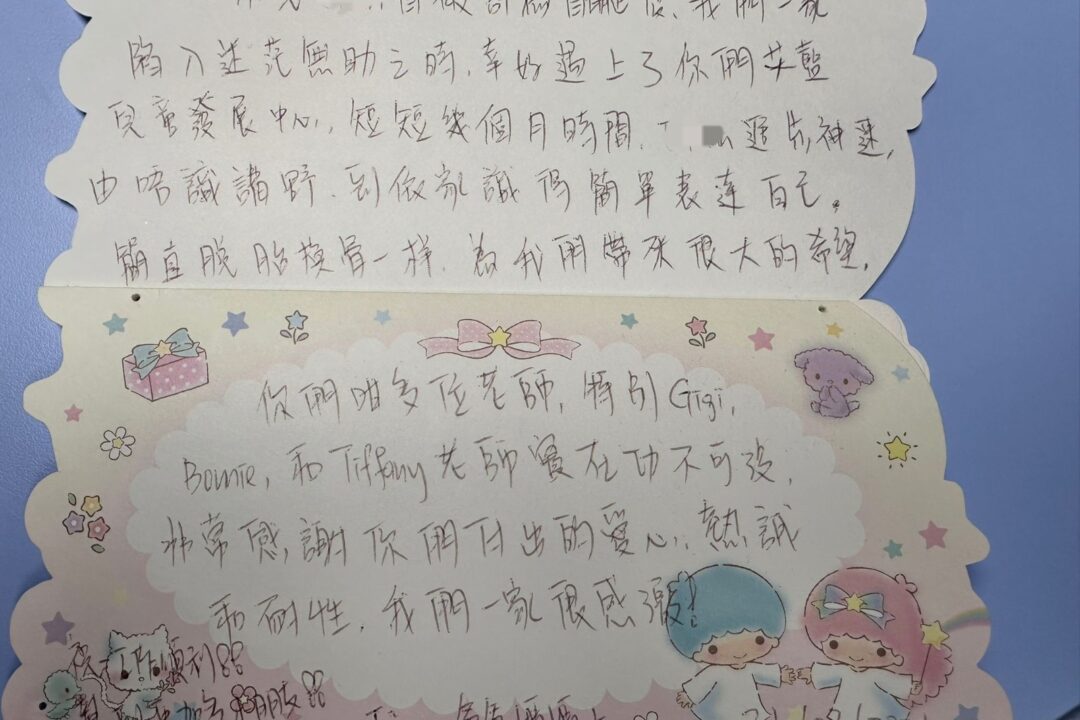 我們一家
陷入迷茫無助之時,幸好遇上了你們艾藍
兒童發展中心,短短幾個月時間,進步神速,
由唔識講野,到依家識得簡單表達自己。
簡直脫胎換骨一樣,為我們帶來很大的希望,
你們咁多位老師,特別Gigi,
Bonnie,和Tiffany老師實在功不可沒,
非常感謝你們付出的愛心,熱誠
和耐性,我們一家很感激!
工作順利